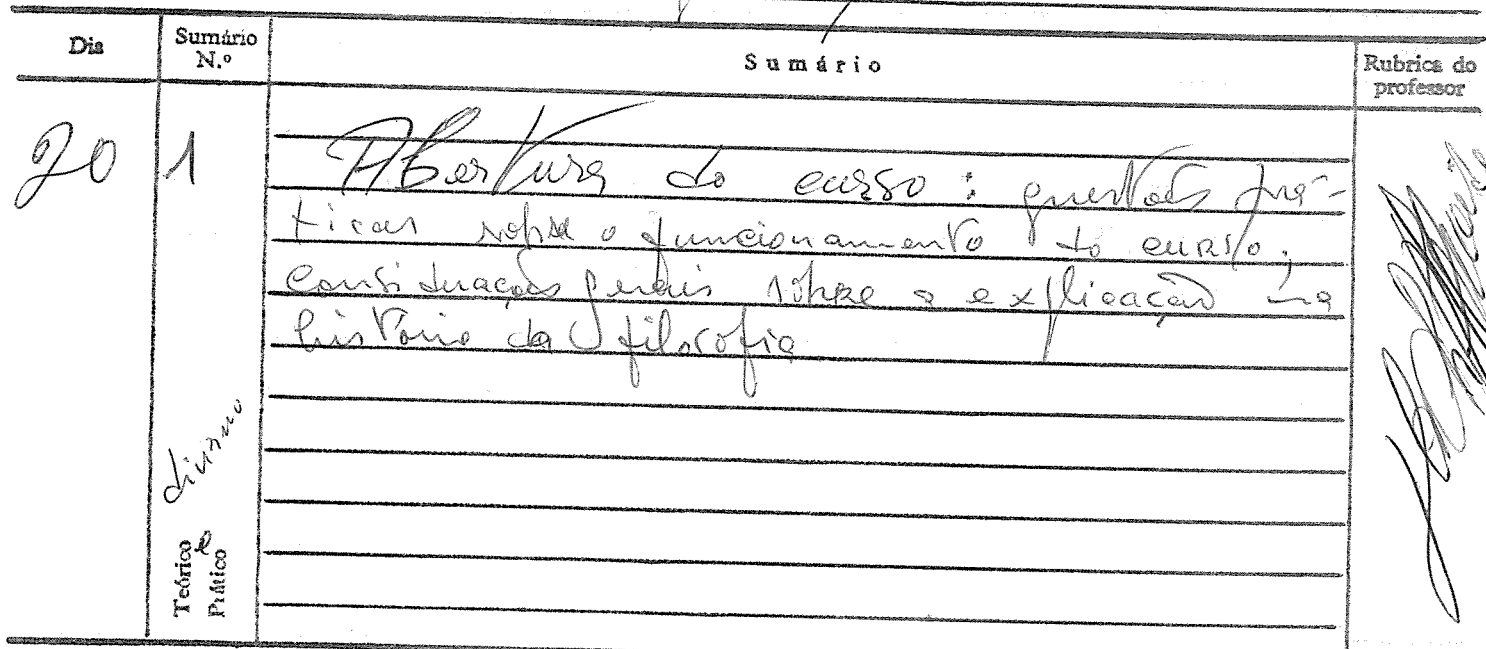 Dia
Sumário N.º
Sumário
Rubrica do professor
20
1
Abertura do curso: questões prá-
ticas sobre o funcionamento do curso;
considerações gerais sobre a explicação na
história da filosofia
diurno
Teórico e
Prático